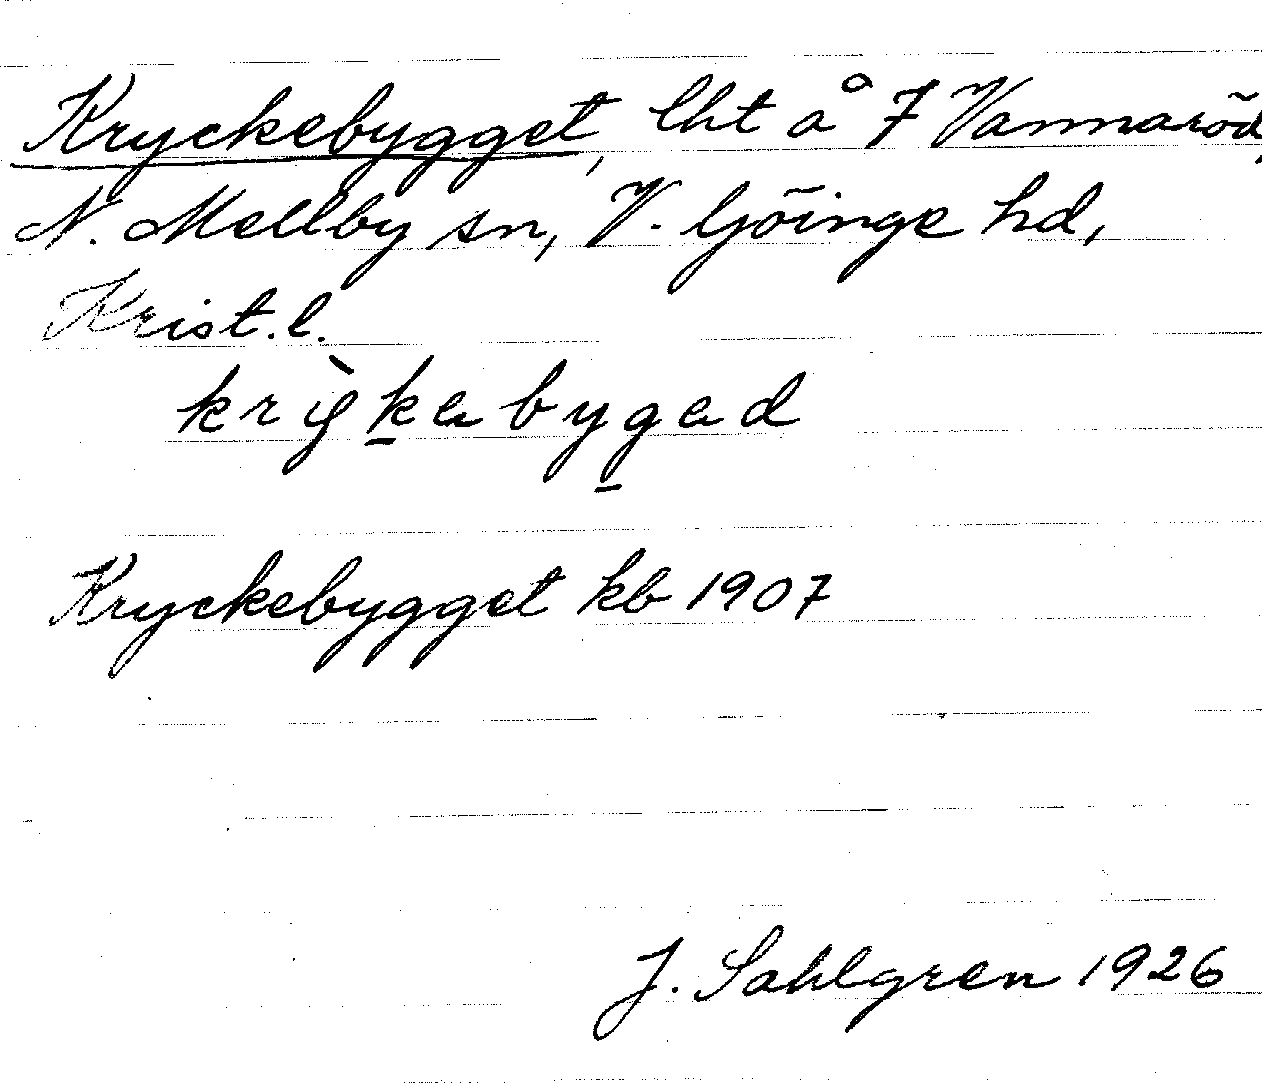 Kryckebygget, lht å 7 Vannaröd,
N. Mellby sn, V. Göinge hd,
Krist.l.
krỳkabygad
Kryckebygget kb 1907
J. Sahlgren 1926